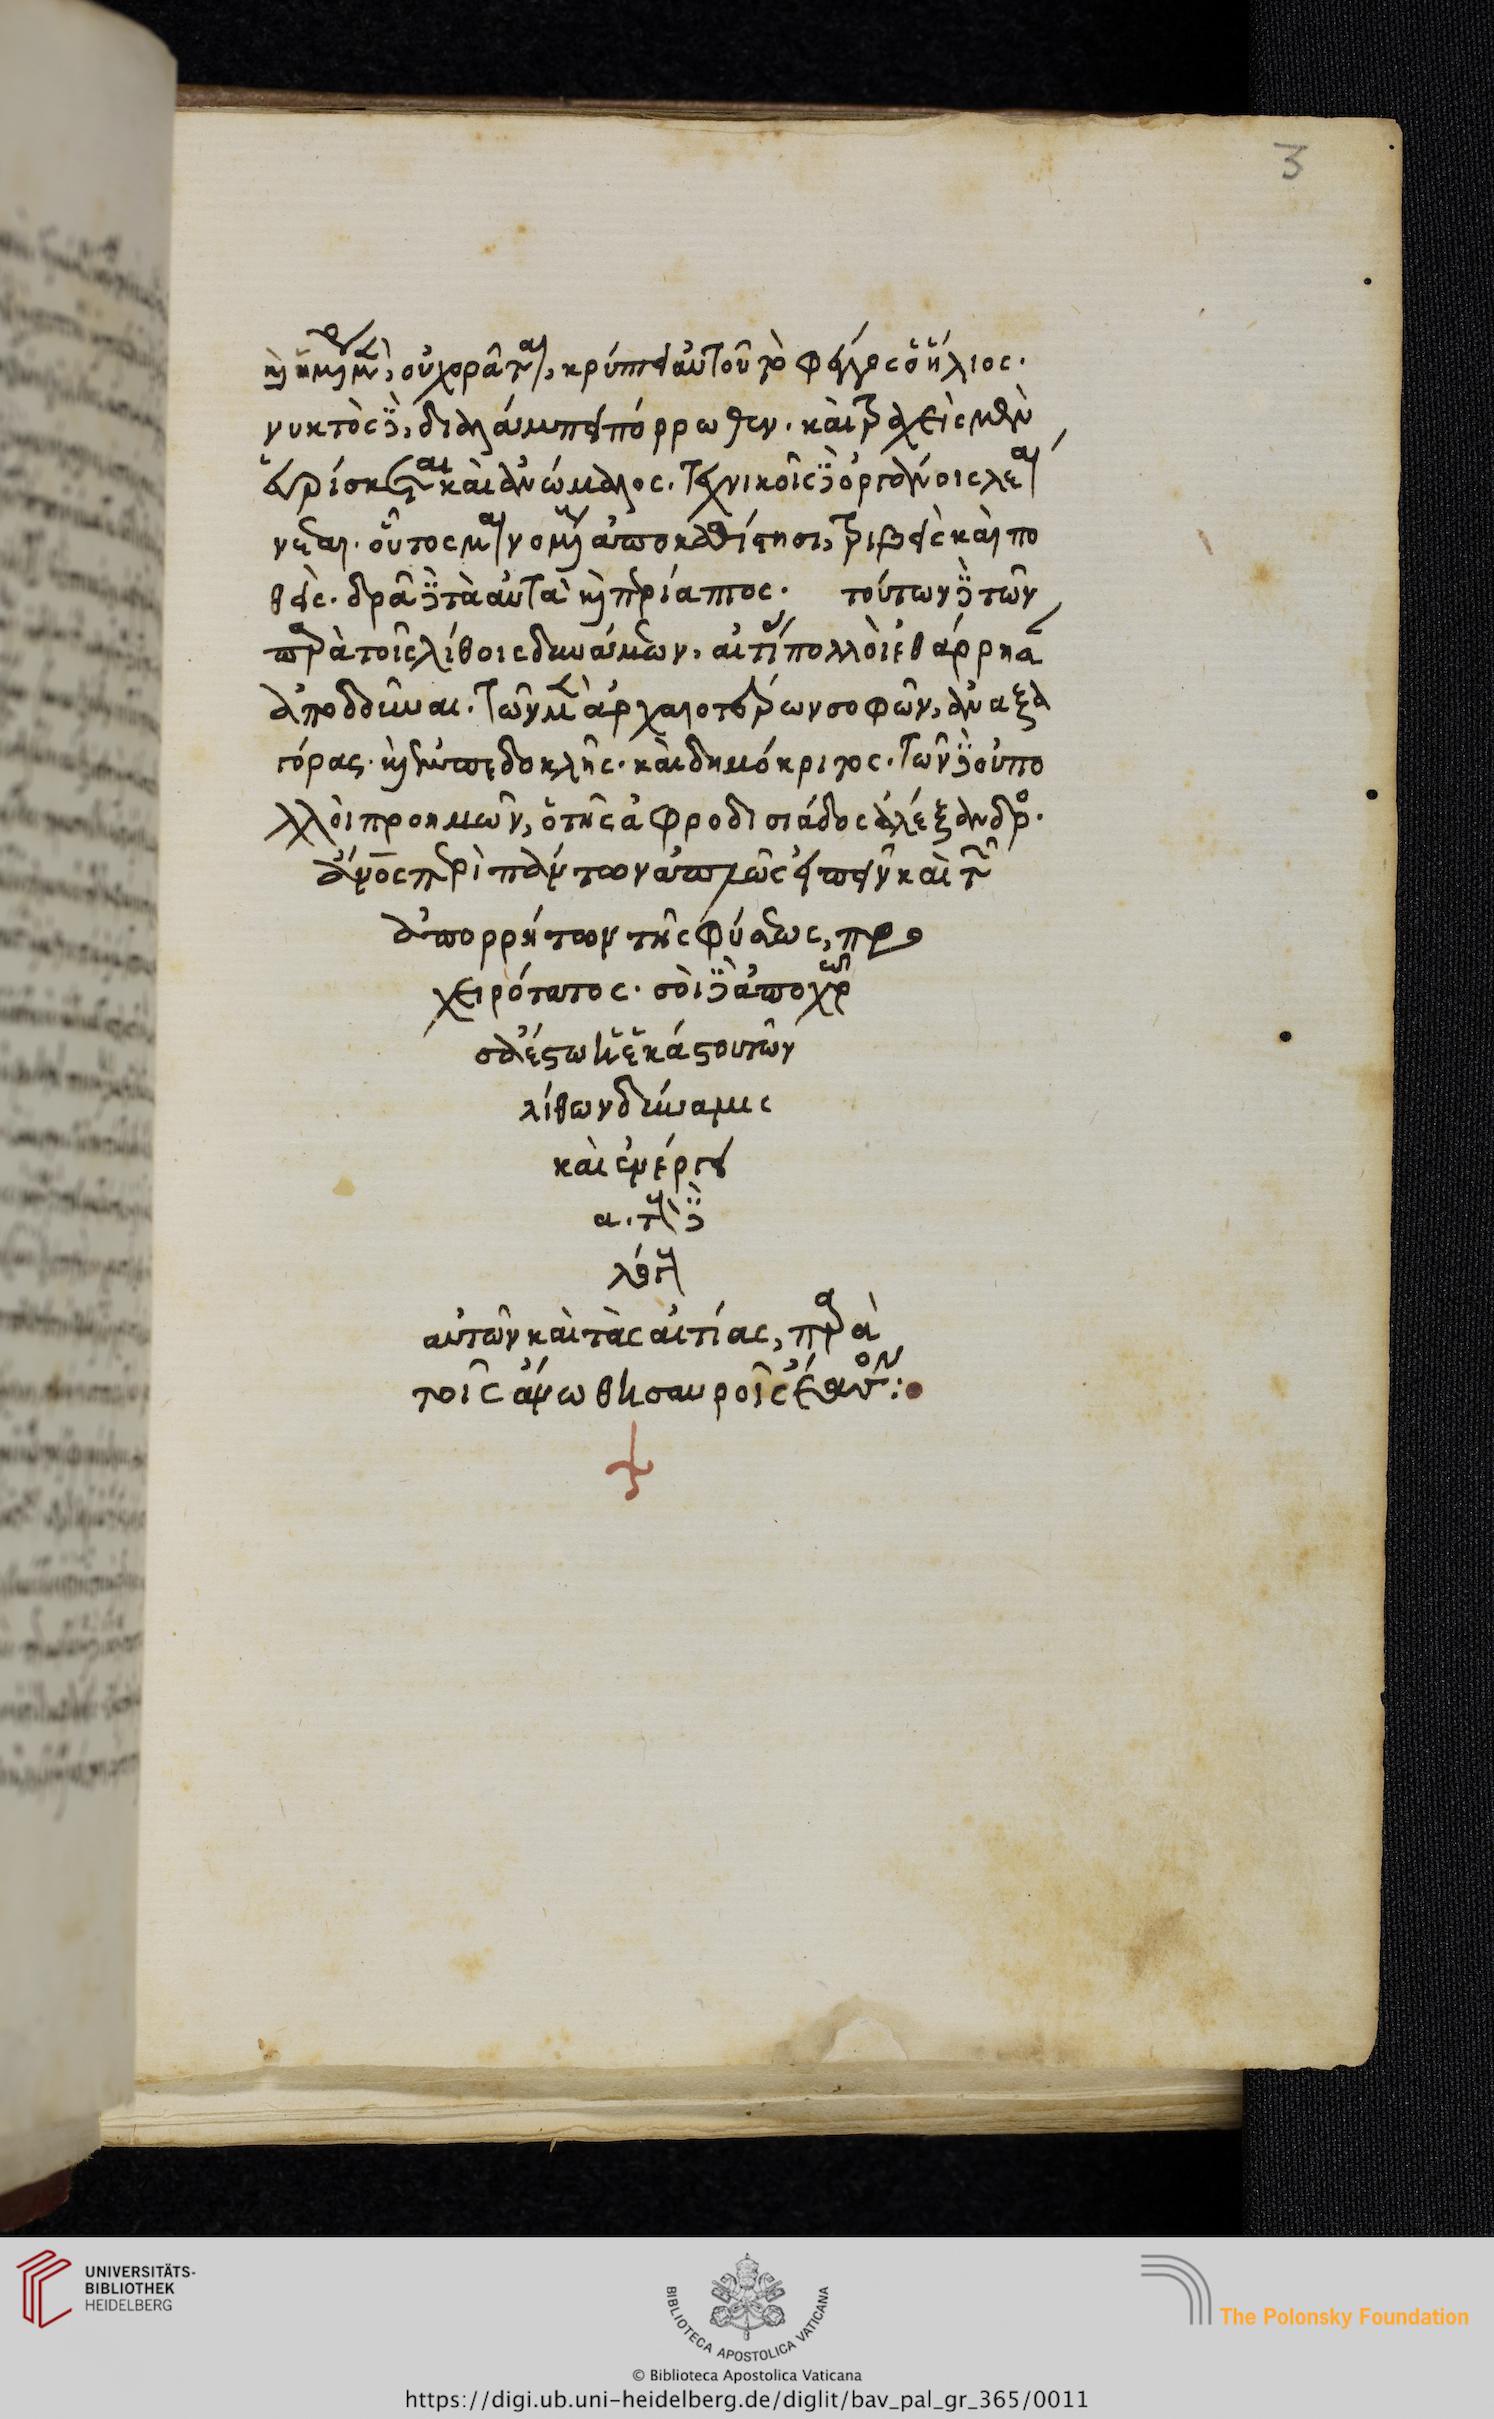 3
καὶ ἡμέρας μὲν, οὐχ ὁρᾶται, κρύπτει αὐτοῦ τὸ φέγγος ὁ ἥλιος.
νυκτὸς δὲ, διαλάμπει πόρρωθεν. καὶ τραχεὶς μὲν
εὑρίσκεται καὶ ἀνώμαλος. τεχνικοῖς δὲ ὀργάνοις λεαί
νεται. οὗτος μαινομένους ἀποκαθίστησι, τριβεὶς καὶ πο
θεὶς. δρᾶ δὲ τὰ αὐτὰ καὶ πρίαπος. τούτων δὲ τῶν
παρὰ τοῖς λίθοις δυνάμεων, αἰτίας πολλοὶ ἐθάρρησαν
ἀποδοῦναι. τῶν μὲν ἀρχαιοτέρων σοφῶν, ἀναξα
γόρας. καὶ ἐμπεδοκλῆς. καὶ δημόκριτος. τῶν δὲ οὐ πο
λλοὶ προ ημῶν, ὁ τῆς ἀφροδισιάδος ἀλέξανδρος.
περὶ πάντων ἁπλῶς εἰπεῖν καὶ τῶν
ἀπορρήτων τῆς φύσεως, προ
χειρότατος. σοὶ δὲ ἀποχρῶ
σα ἔστω ἡ ἑκάστου τῶν
λίθων δύναμις
καὶ ἐνέργει
α. τοὺς δὲ
λόγους
αὐτῶν καὶ τὰς αἰτίας, παρὰ
τοῖς ἄνω θησαυροῖς ἐατέον:
UNIVERSITÄTS-
BIBLIOTHEK
HEIDELBERG
BIBLIOTECA APOSTOLICA VATICANA
The Polonsky Foundation
© Biblioteca Apostolica Vaticana
https://digi.ub.uni-heidelberg.de/diglit/bav_pal_gr_365/0011